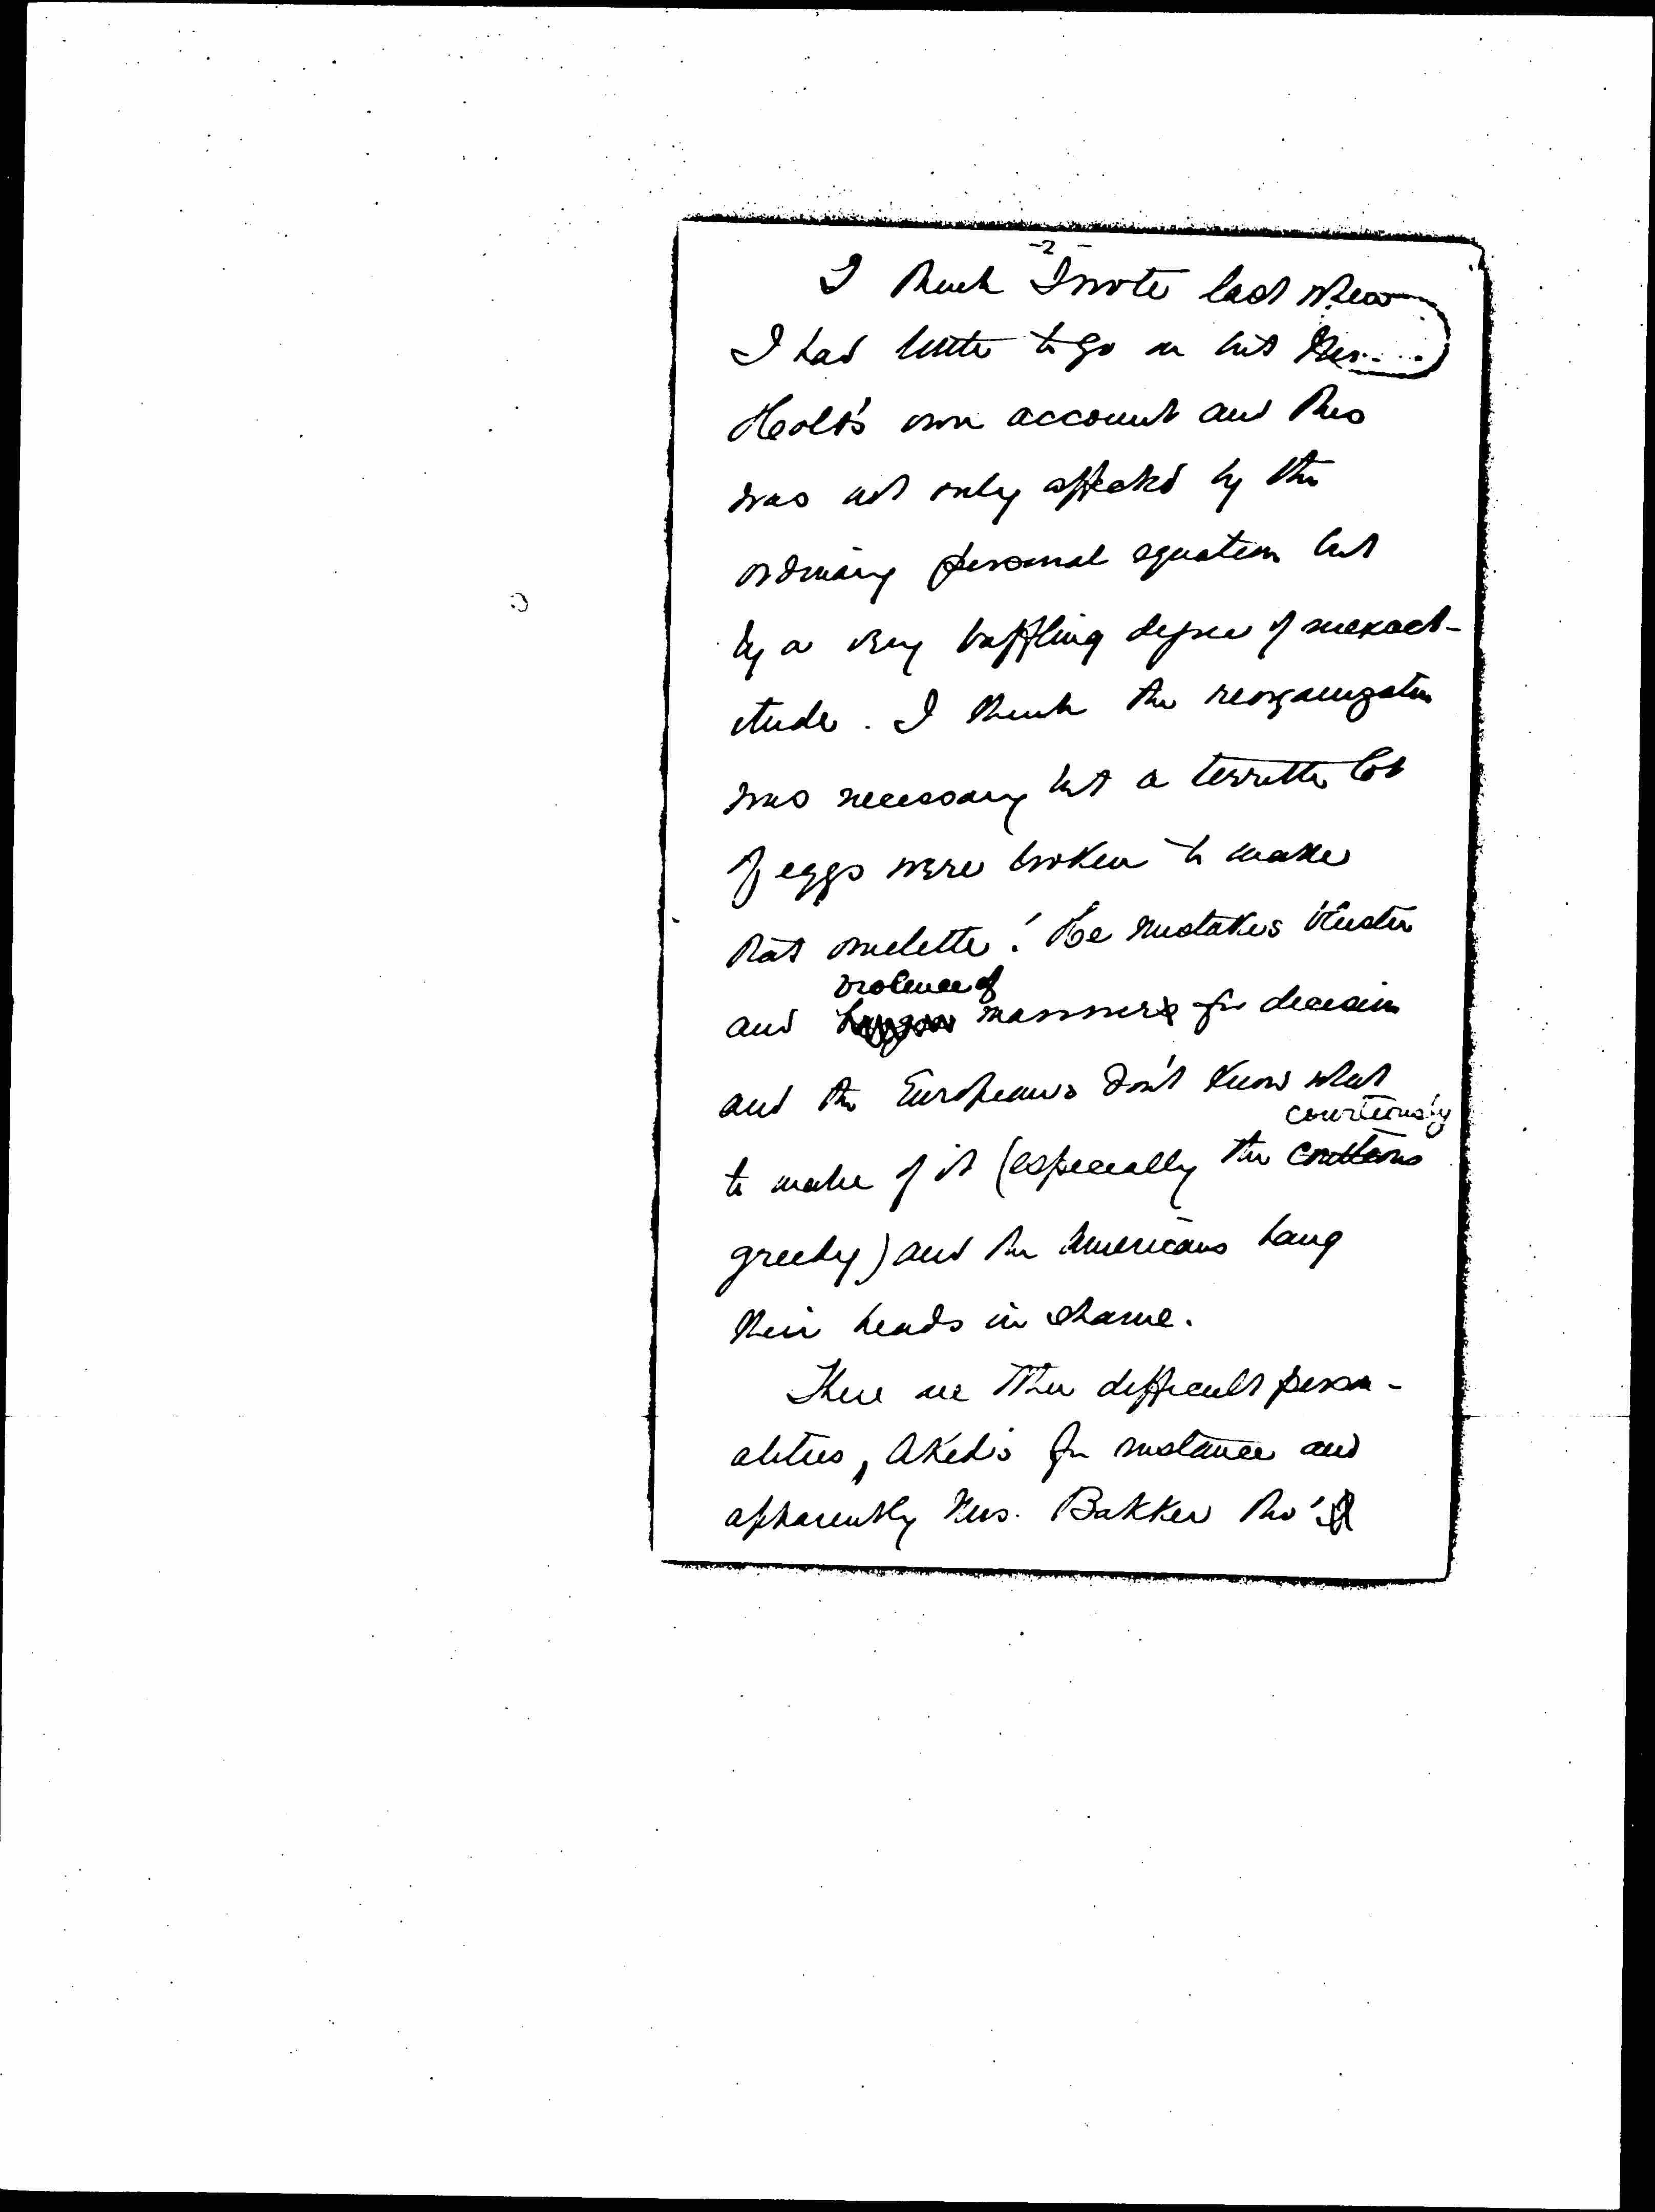 -2-
I think I wrote last when
I had little to go on but
Holt's own account and this
was not only affected by the
ordinary personal equation but
by a very baffling degree of inexact-
itude. I think the reorganization
was necessary but a terrible lot
of eggs were broken to make
that omelette! He mistakes bluster
violence of
and manners for decision
and the Europeans don't know what
courteously
to make of it (especially the
greedy) and the Americans hang
their heads in shame.
There are other difficult person-
alities, Aked's for instance and
apparently Mrs. Bakker tho'